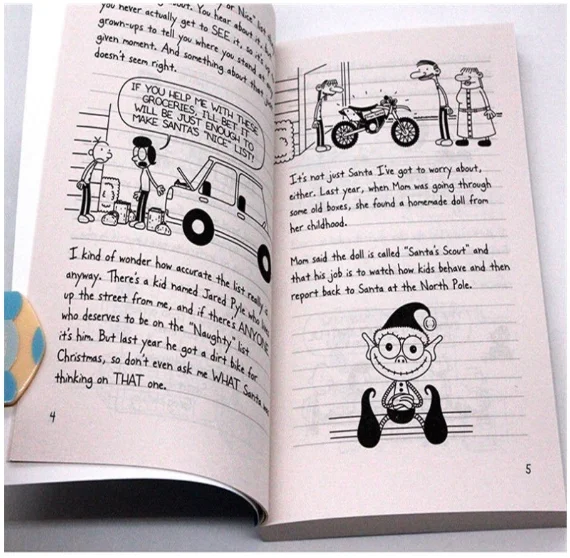 or Nice" list
you never actually get to SEE it, so it's
grown-ups to tell you where you stand at
given moment. And something about that
doesn't seem right.
IF YOU HELP ME WITH THESE
GROCERIES, I'LL BET IT
WILL BE JUST ENOUGH TO
MAKE SANTA'S "NICE" LIST!
I kind of wonder how accurate the list really
anyway. There's a kid named Jared Pyle who
up the street from me, and if there's ANYONE
who deserves to be on the "Naughty" list
it's him. But last year he got a dirt bike for
Christmas, so don't even ask me WHAT Santa
thinking on THAT one.
4
It's not just Santa I've got to worry about,
either. Last year, when Mom was going through
some old boxes, she found a homemade doll from
her childhood.
Mom said the doll is called "Santa's Scout" and
that his job is to watch how kids behave and then
report back to Santa at the North Pole.
5